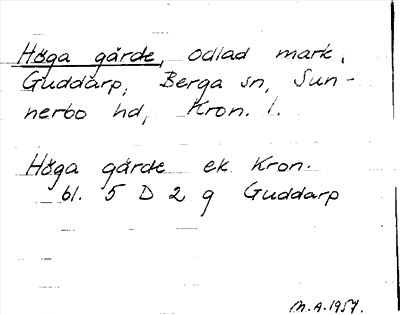 Höga gärde, odlad mark,
Guddarp, Berga sn, Sun-
nerbo hd, Kron. l.
Höga gärde ek. Kron.
bl. 5 D 2 g Guddarp
M.A. 1957.